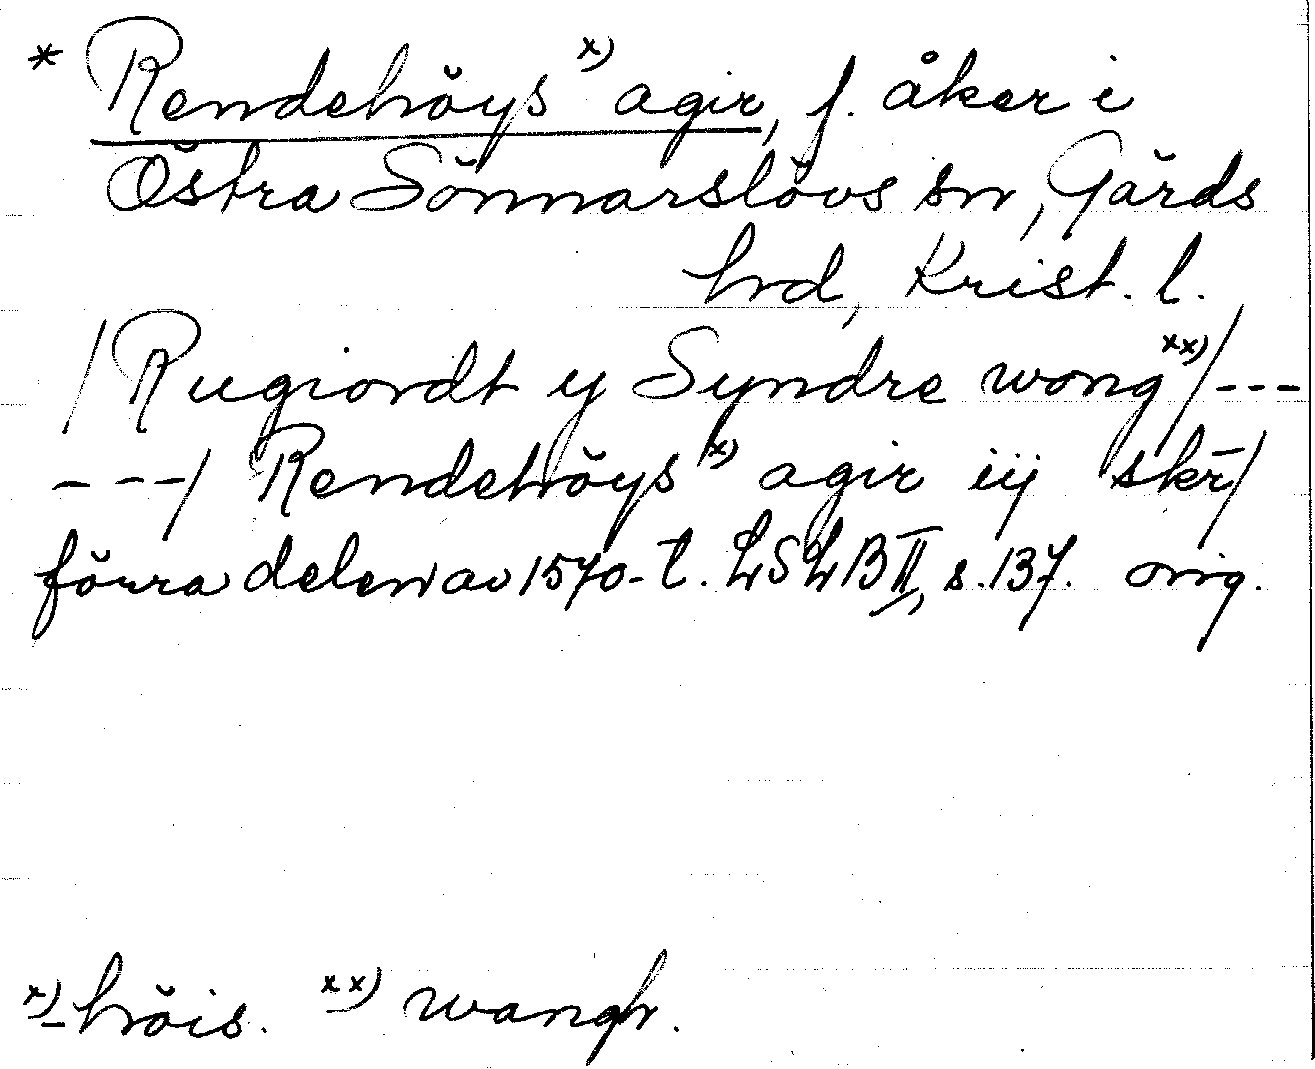 * Rendehöys x) agir, f. åker i
Östra Sönnarslövs sn, Gärds
hrd, Krist. l.
/Rugiordt y Syndre wong xx)/---
---/ Rendehöys x) agir iij skr̄/
förra delen av 1570-t. LSLB II, s. 137. orig.
x) -höis. xx) wangh.